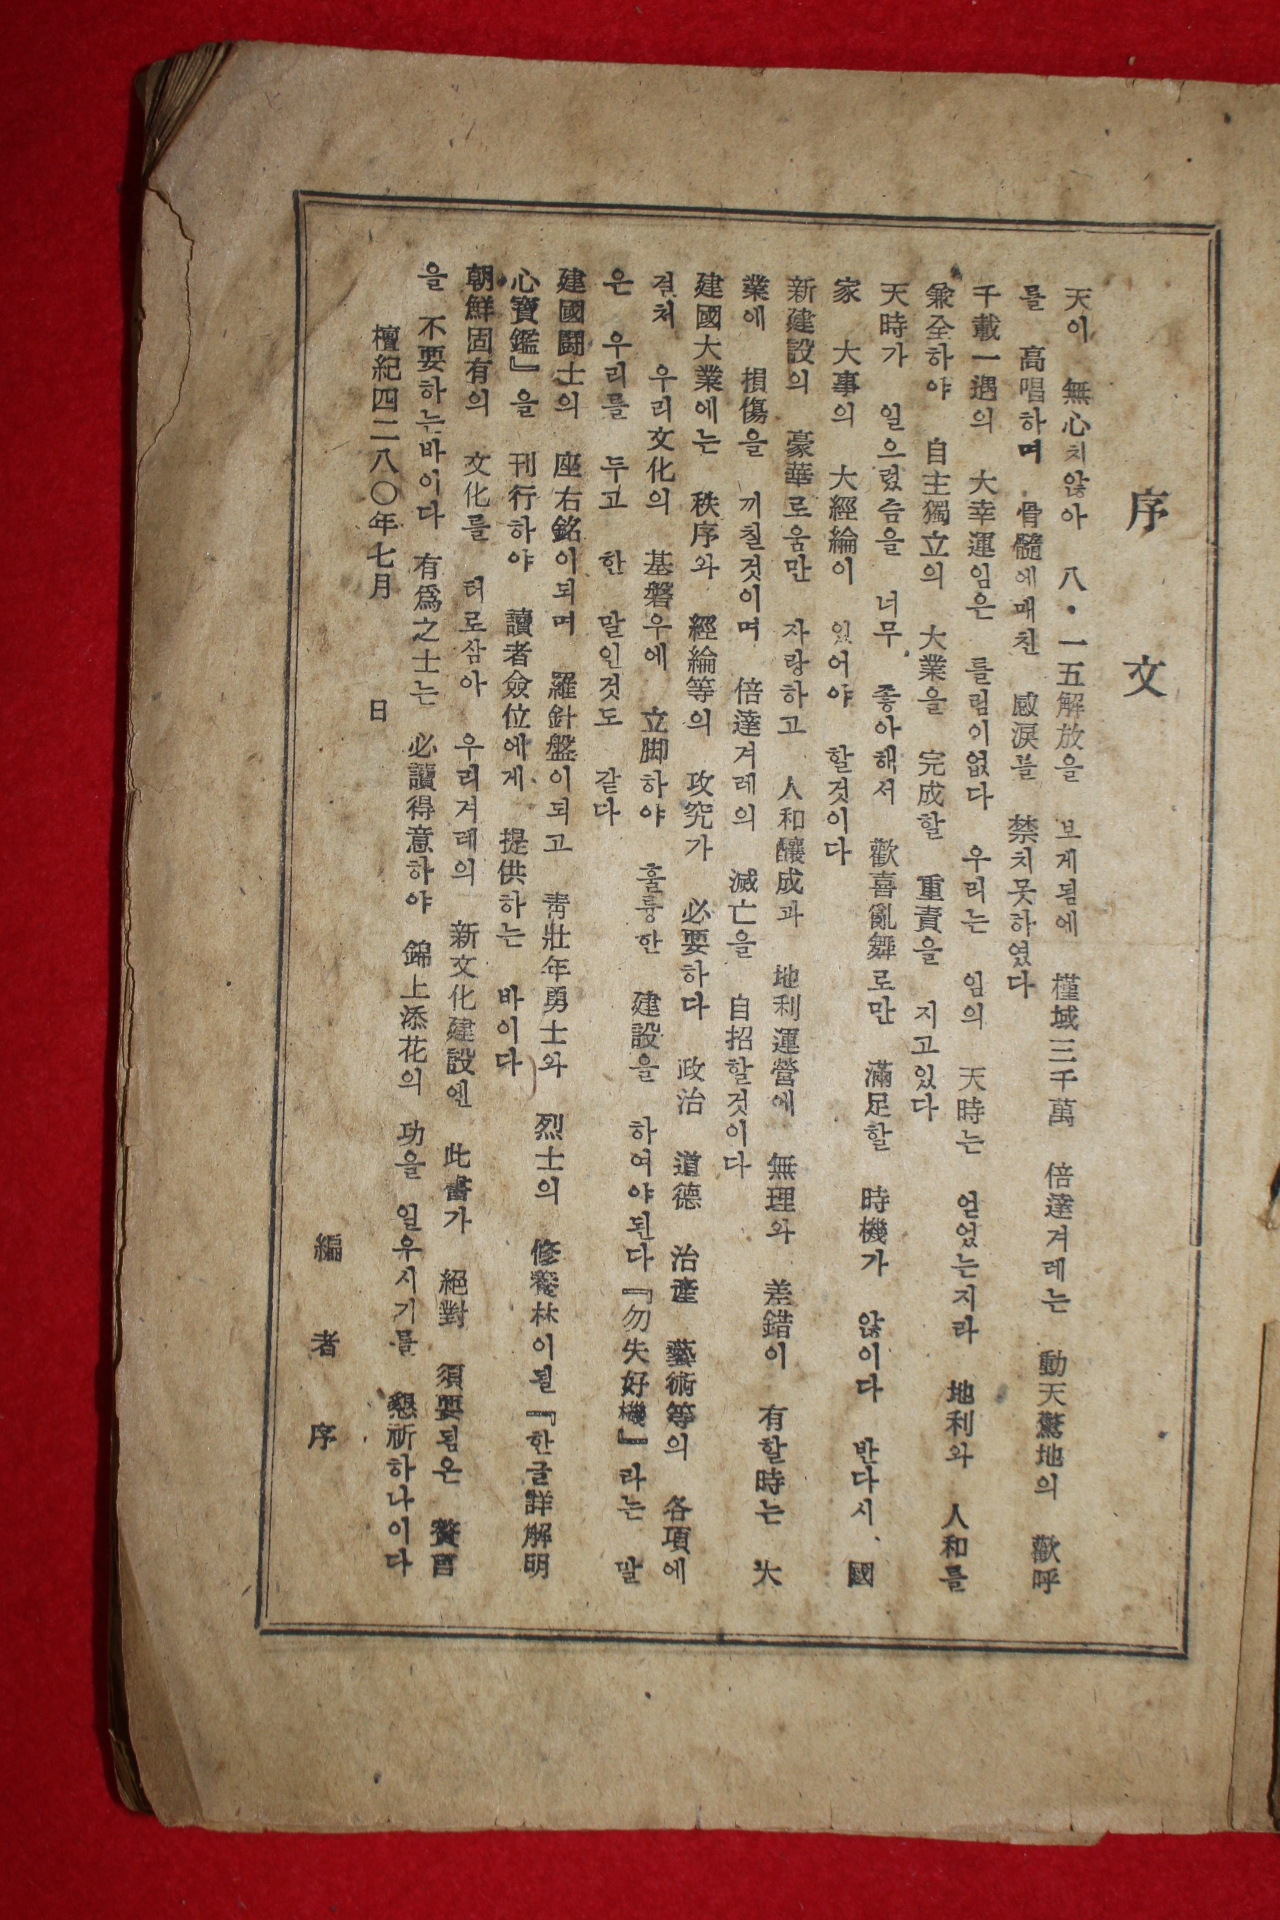 序文
天이 無心치않아 八·一五解放을 보게됨에 槿域三千萬 倍達겨레는 動天驚地의 歡呼
를 高唱하며 骨髓에매친 感淚를 禁치못하였다
千載一遇의 大幸運임은 틀림이없다 우리는 임의 天時는 얻었는지라 地利와 人和를
兼全하야 自主獨立의 大業을 完成할 重責을 지고있다
天時가 일으렀슴을 너무 좋아해서 歡喜亂舞로만 滿足할 時機가 않이다 반다시 國
家 大事의 大經綸이 있어야 할것이다
新建設의 豪華로움만 자랑하고 人和釀成과 地利運營에 無理와 差錯이 有할時는 大
業에 損傷을 끼칠것이며 倍達겨레의 滅亡을 自招할것이다
建國大業에는 秩序와 經綸等의 攻究가 必要하다 政治 道德 治產 藝術等의 各項에
걸처 우리文化의 基磐우에 立脚하야 훌륭한 建設을 하여야된다『勿失好機』라는 말
은 우리를 두고 한 말인것도 같다
建國鬪士의 座右銘이되며 羅針盤이되고 靑壯年勇士와 烈士의 修養林이될『한글詳解明
心寶鑑』을 刊行하야 讀者僉位에게 提供하는 바이다
朝鮮固有의 文化를 터로삼아 우리겨레의 新文化建設엔 此書가 絕對 須要됨은 贅言
을 不要하는바이다 有爲之士는 必讀得意하야 錦上添花의 功을 일우시기를 懇祈하나이다
檀紀四二八〇年七月 日
編者序